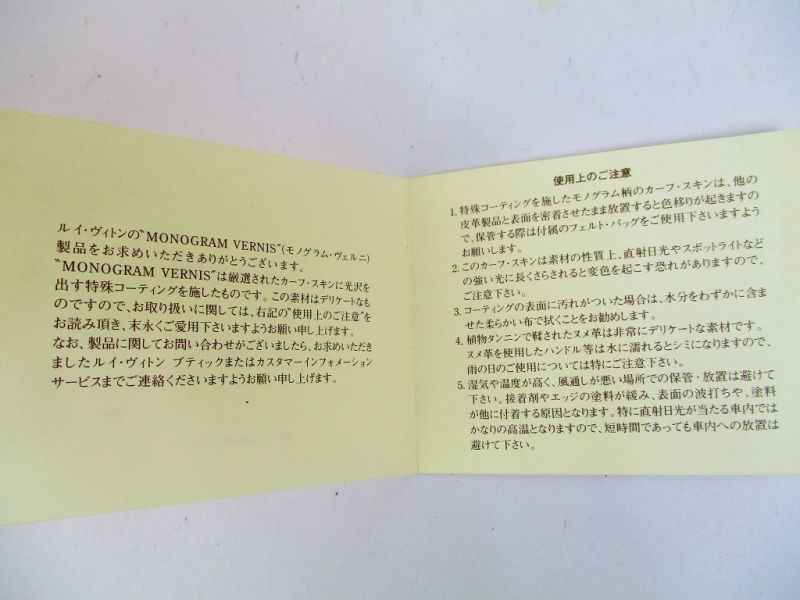 ルイ・ヴィトンの“MONOGRAM VERNIS”(モノグラム・ヴェルニ)
製品をお求めいただきありがとうございます。
“MONOGRAM VERNIS”は厳選されたカーフ・スキンに光沢を
出す特殊コーティングを施したものです。この素材はデリケートなも
のですので、お取り扱いに関しては、右記の“使用上のご注意”を
お読み頂き、末永くご愛用下さいますようお願い申し上げます。
なお、製品に関してお問い合わせがございましたら、お求めいただき
ましたルイ・ヴィトン ブティックまたはカスタマーインフォメーション
サービスまでご連絡くださいますようお願い申し上げます。
使用上のご注意
1. 特殊コーティングを施したモノグラム柄のカーフ・スキンは、他の
皮革製品と表面を密着させたまま放置すると色移りが起きますの
で、保管する際は付属のフェルト・バッグをご使用下さいますよう
お願いします。
2. このカーフ・スキンは素材の性質上、直射日光やスポットライトなど
の強い光に長くさらされると変色を起こす恐れがありますので、
ご注意下さい。
3. コーティングの表面に汚れがついた場合は、水分をわずかに含ま
せた柔らかい布で拭くことをお勧めします。
4. 植物タンニンで鞣されたヌメ革は非常にデリケートな素材です。
ヌメ革を使用したハンドル等は水に濡れるとシミになりますので、
雨の日のご使用については特にご注意下さい。
5. 湿気や温度が高く、風通しが悪い場所での保管・放置は避けて
下さい。接着剤やエッジの塗料が緩み、表面の波打ちや、塗料
が他に付着する原因となります。特に直射日光が当たる車内では
かなりの高温となりますので、短時間であっても車内への放置は
避けて下さい。